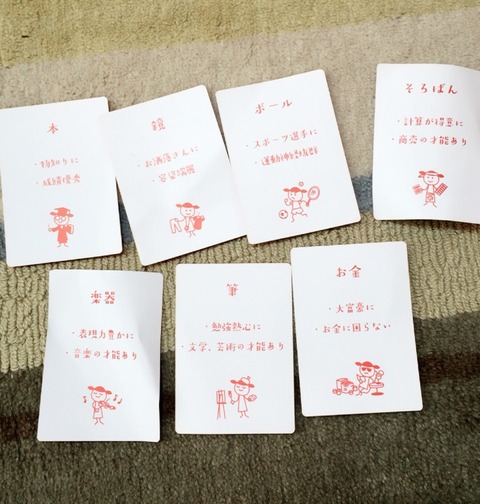 本
・物知りに
・成績優秀
鏡
・お洒落さんに
・容姿端麗
ボール
・スポーツ選手に
・運動神経抜群
そろばん
・計算が得意に
・商売の才能あり
楽器
・表現力豊かに
・音楽の才能あり
筆
・勉強熱心に
・文学、芸術の才能あり
お金
・大富豪に
・お金に困らない